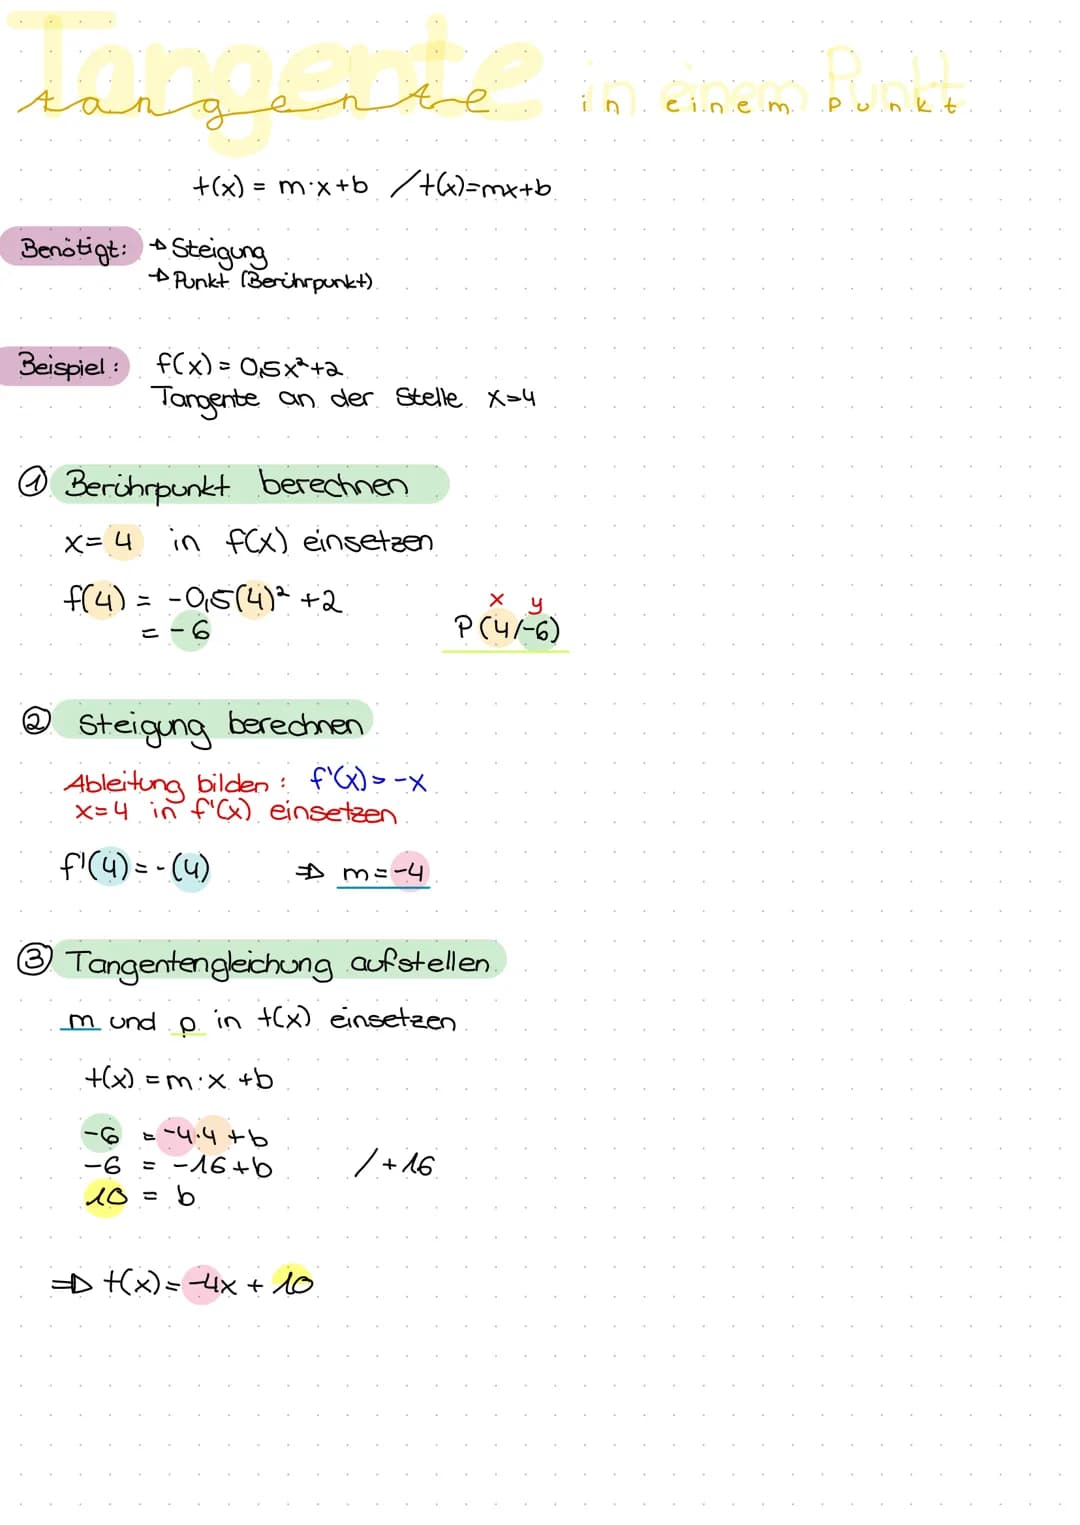 Tangente in einem Punkt
tangente in einem Punkt
t(x) = m·x+b /t(x)=mx+b
Benötigt: → Steigung
→ Punkt (Berührpunkt)
Beispiel: f(x) = 0,5x²+2
Tangente an der Stelle x=4
① Berührpunkt berechnen
x=4 in f(x) einsetzen
f(4) = -0,5(4)² +2
= -6
x y
P(4/-6)
② Steigung berechnen
Ableitung bilden: f'(x)=-x
x=4 in f'(x) einsetzen
f'(4) = -(4) ⇒ m=-4
③ Tangentengleichung aufstellen
m und p in t(x) einsetzen
t(x) = m·x +b
-6 = -4·4 +b
-6 = -16+b /+16
10 = b
⇒ t(x) = -4x + 10